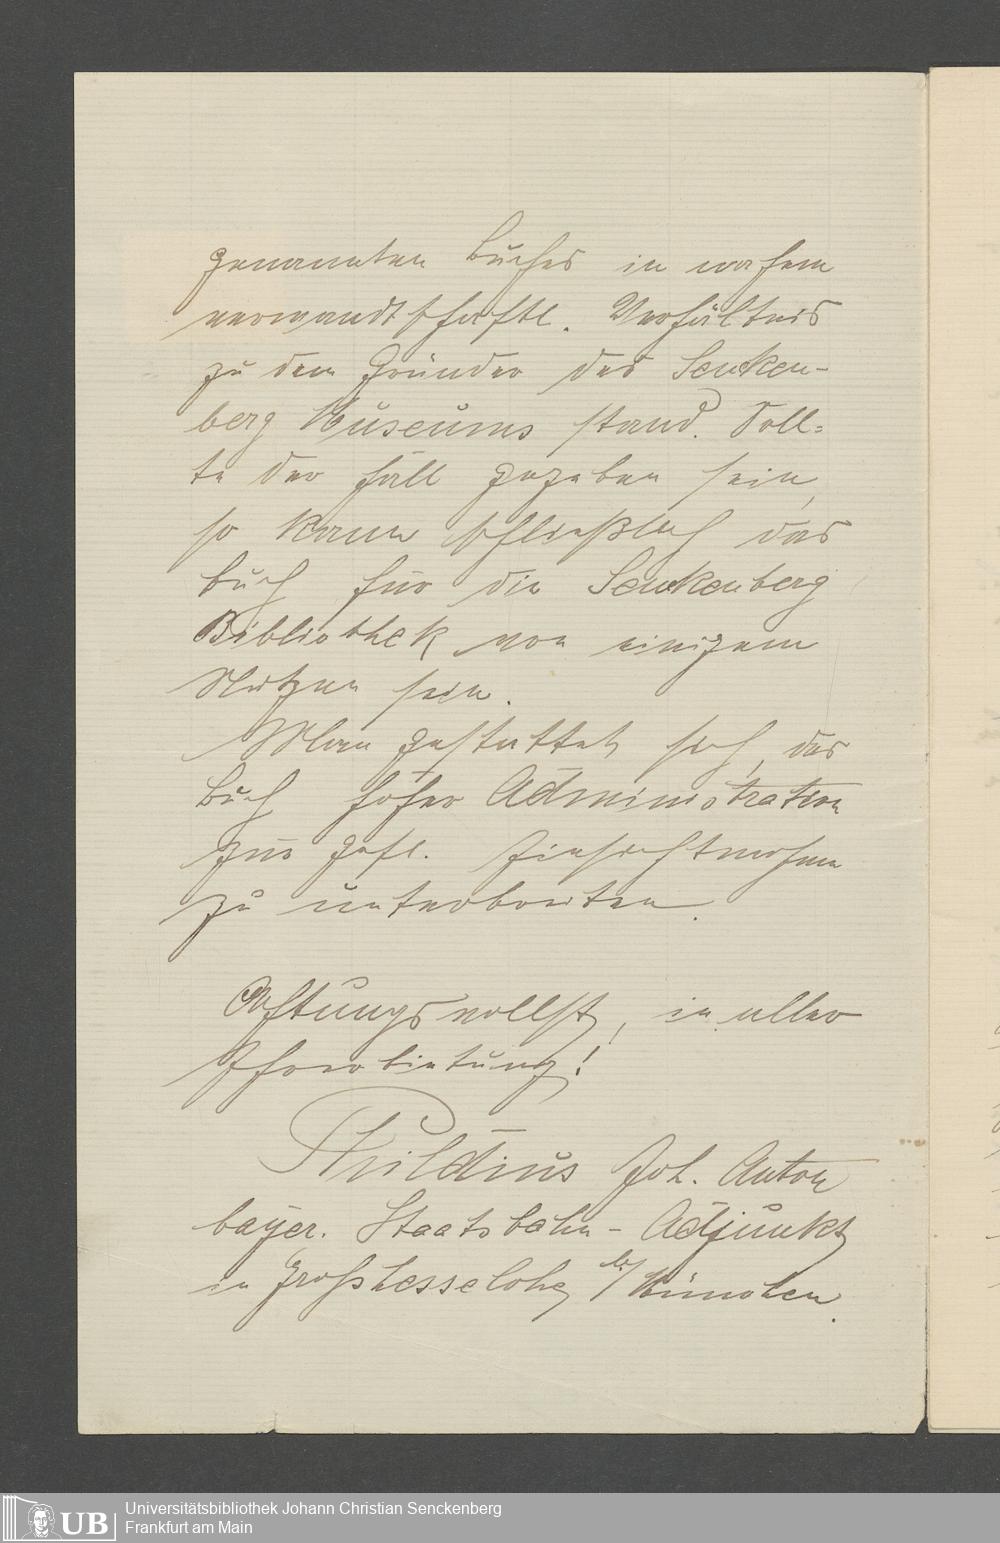 genannten Buches in nahem
verwandtschaftl. Verhältnis
zu dem Gründer des Senken-
berg Museums stand. Soll-
te der Fall gegeben sein,
so kann schließlich das
Buch für die Senkenberg
Bibliothek von einigem
Nutzen sein.
Man gestattet sich, das
Buch hoher Administration
zur gefl. Einsichtnahme
zu unterbreiten.
Achtungsvollst, in aller
Ehrerbietung!
Joh. Anton
bayer. Staatsbahn-Adjunkt
in Großhesselohe b/München.
UB
Universitätsbibliothek Johann Christian Senckenberg
Frankfurt am Main